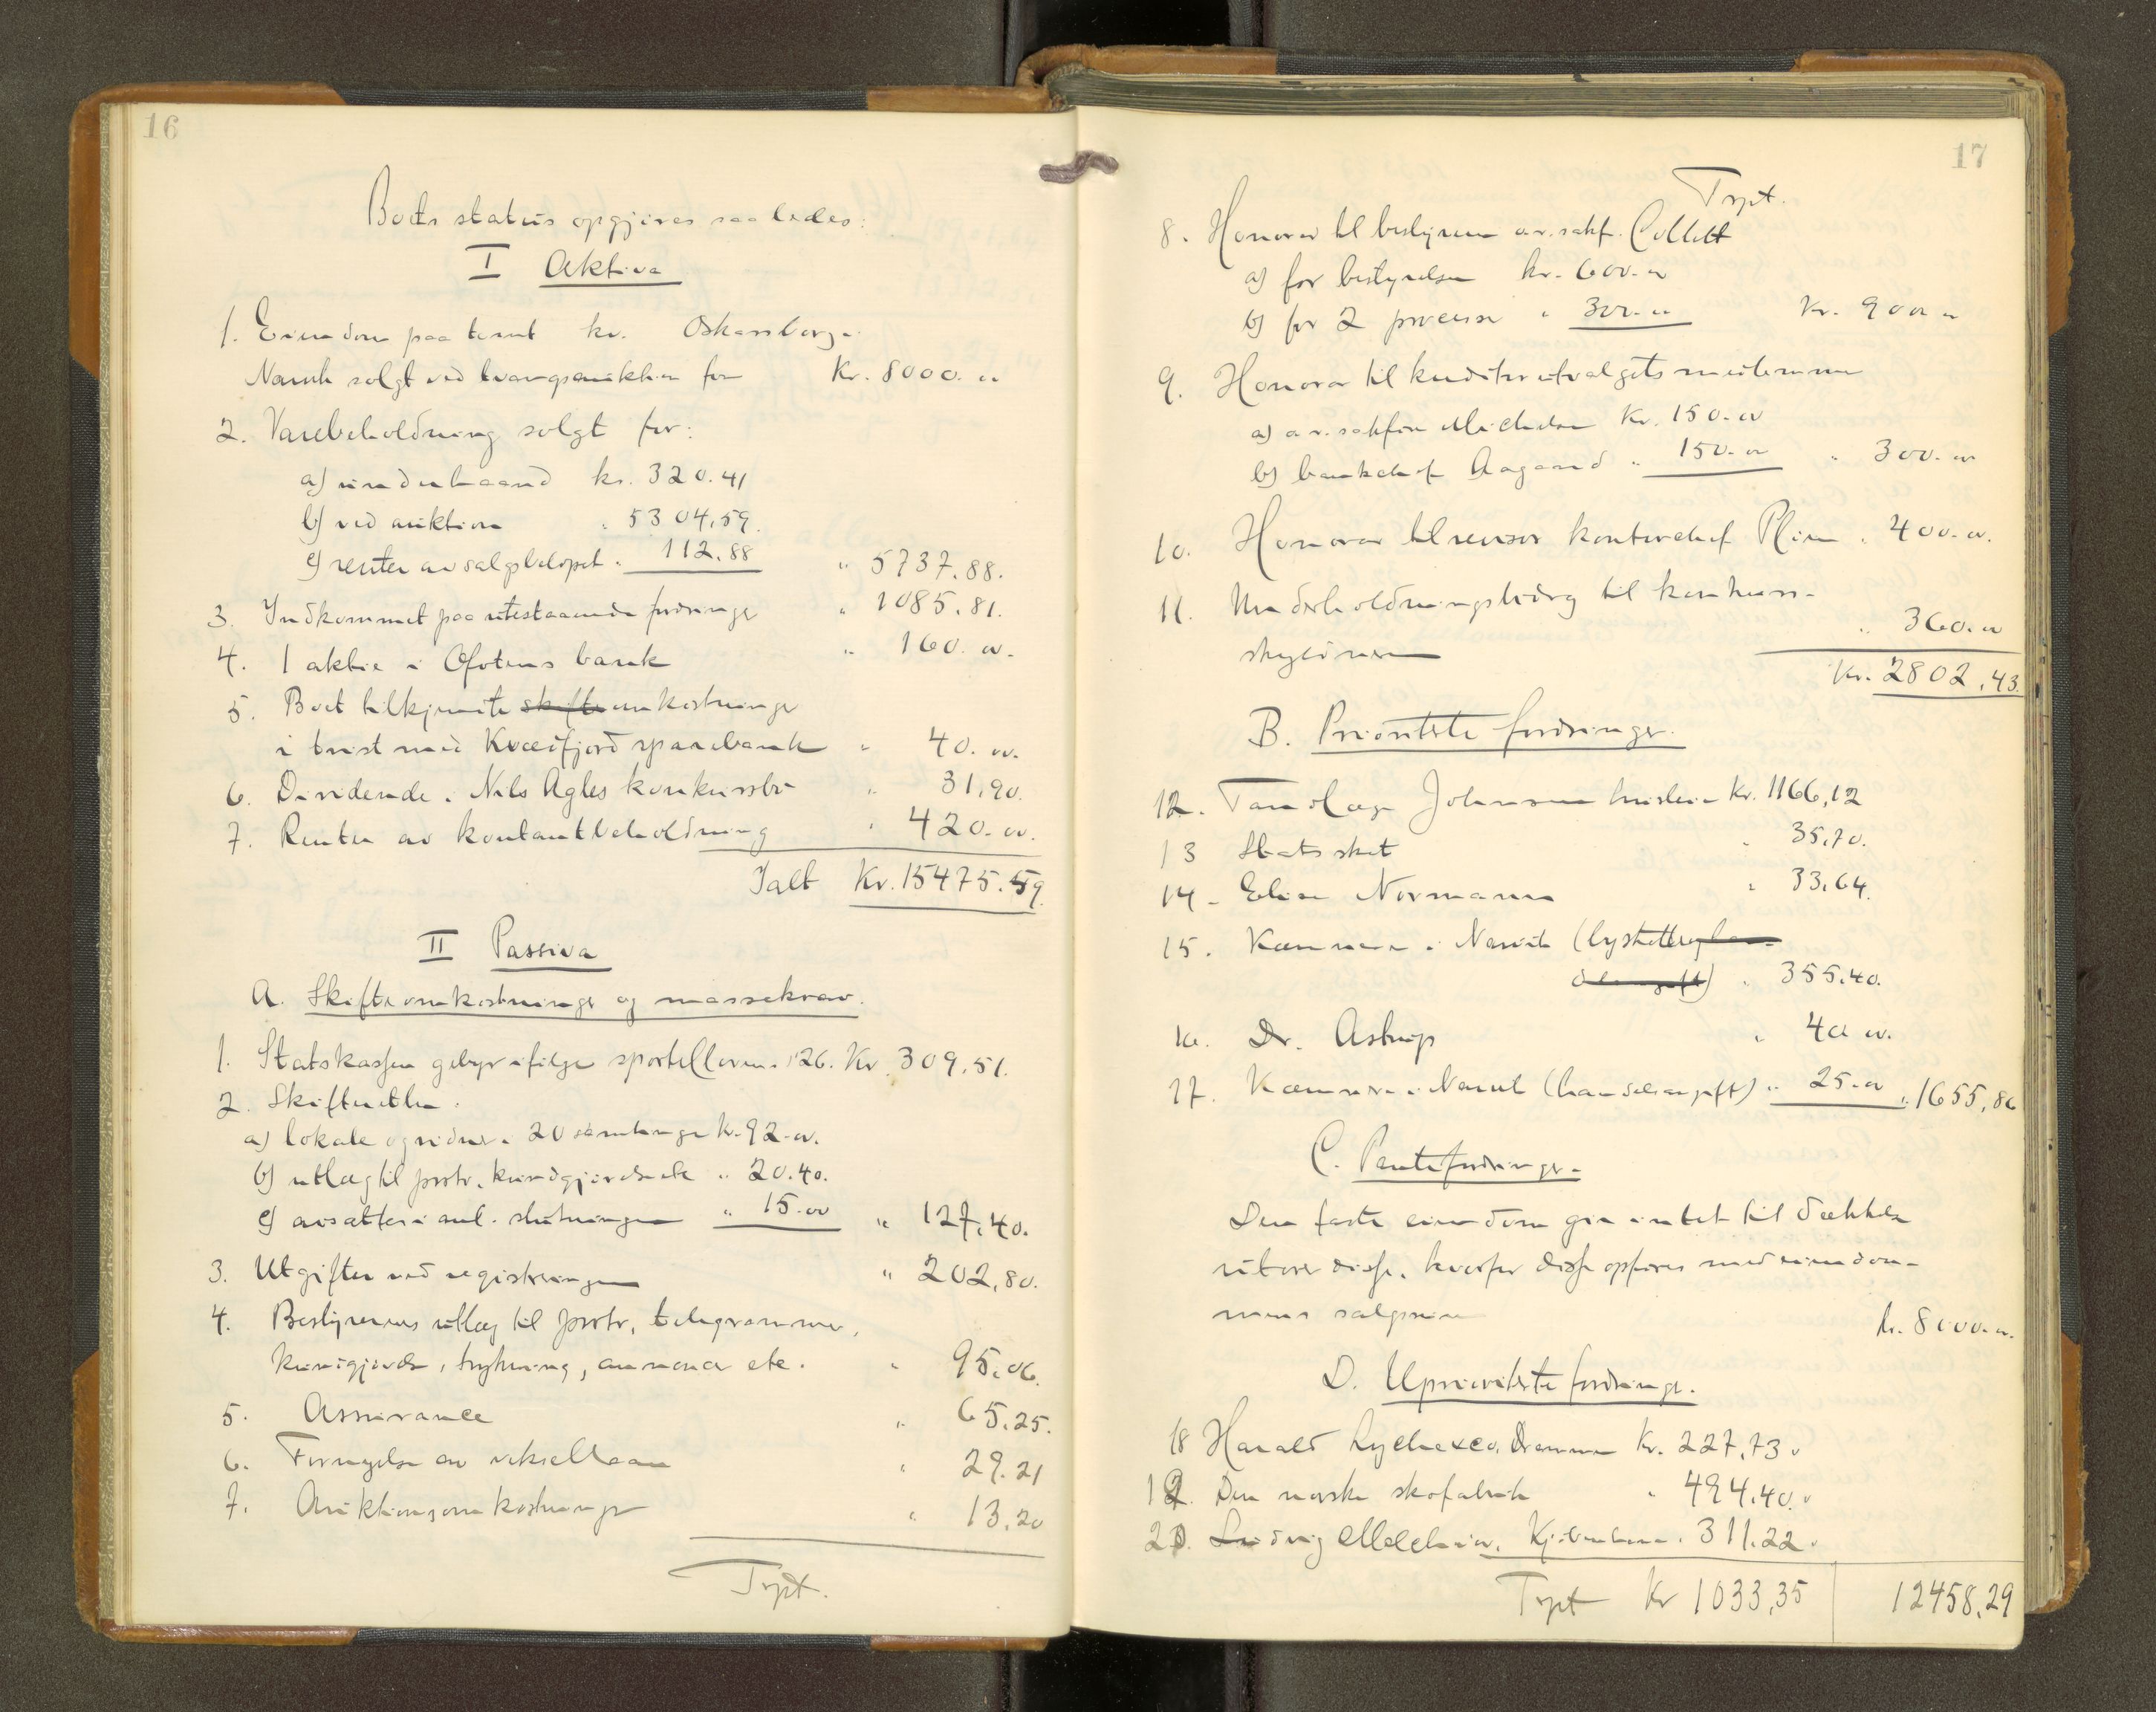 16
Boets status opgjøres saaledes:
I Aktiva
1. Eiendom paa tomt kv. Oskarsborg-
Narvik solgt ved tvangsauktion for Kr. 8000.00
2. Varebeholdning solgt for:
a) underhaand kr. 320.41
b) ved auktion " 5304,59.
c) renter av salgsbeløpet " 112.88 " 5737.88.
3. Indkommet paa utestaaende fordringer " 1085.81.
4. 1 aktie i Ofotens bank " 160.00.
5. Boet tilkjendte skifte omkostninger
i tvist med Kvædfjord sparebank " 40.00.
6. Dividende i Nils Agles konkursbo " 31,90.
7. Renter av kontantbeholdning " 420.00.
Ialt Kr. 15475.59.
II Passiva
A. Skifteomkostninger og massekrav.
1. Statskassen gebyr ifølge sportelloven § 126. Kr. 309,51.
2. Skifteretten:
a) lokale og vidner i 20 samlinger kr. 92.00.
b) utlæg til porto, kundgjørelse etc " 20.40.
c) avsættes i anl. slutningen " 15.00 " 127,40.
3. Utgifter ved registreringen " 202,80.
4. Bestyrerens utlæg til porto, telegrammer,
kundgjørelse, trykning, annoncer etc. " 95.06.
5. Assurance " 65.25.
6. Fornyelse av veksellaan " 29.21
7. Auktionsomkostninger " 13.20
Trpt.
17
Trpt.
8. Honorar til bestyreren o.r.sakf. Collett
a) for bestyrelsen kr. 600.00
b) for 2 processer " 300.00 Kr. 900.00
9. Honorar til kreditorutvalgets medlemmer
a) o.r.sakfører Michelsen Kr. 150.00
b) bankchef Aagaard " 150.00 " 300.00
10. Honorar til revisor kontorchef " 400.00.
11. Underholdningsbidrag til konkurs-
skyldneren " 360.00
Kr. 2802,43.
B. Prioriterte fordringer.
12. Tandlæge Johnsen husleie Kr. 1166,12
13 Statsskat " 35,70.
14. Elise Normann " 33,64.
15. Kæmneren i Narvik (byskatter
) " 355.40.
16. Dr. Astrup " 40.00.
17. Kæmneren i Narvik (handelsavgift) " 25.00 " 1655,86
C. Pantefordringer.
Den faste eiendom gir intet til dækkelse
utover disse, hvorfor disse opføres med eiendom-
mens salgssum kr. 8000.00.
D. Uprioriterte fordringer.
18 Harald Lyche & Co, Drammen Kr. 227,73
19. Den norske skofabrik " 494,40.
20. Ludvig Melchior, Kjøbenhavn " 311.22.
Trpt Kr 1033,35 12458,29